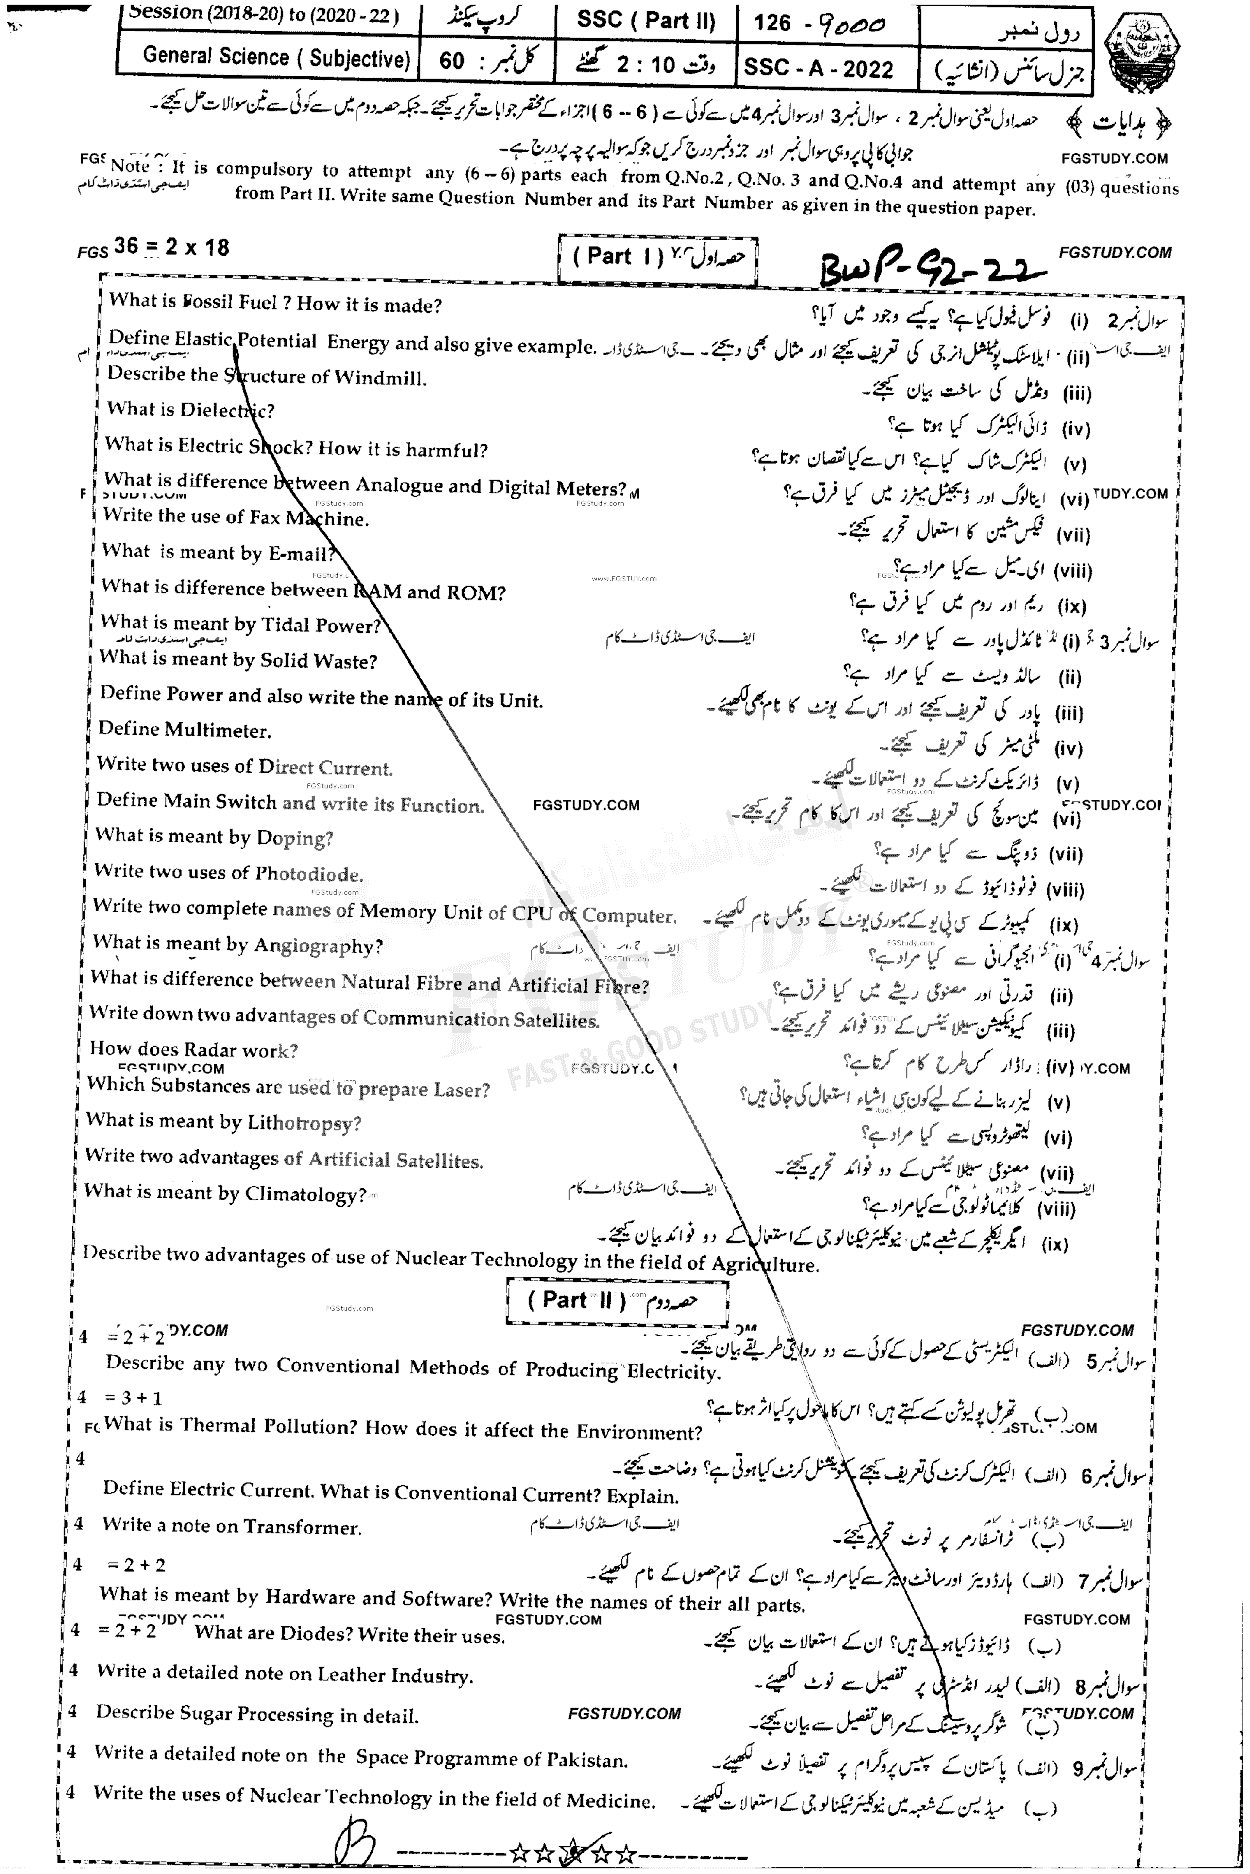 Session (2018-20) to (2020-22) گروپ سیکنڈ SSC (Part II) 126 - 9000 رول نمبر
General Science (Subjective) کل نمبر : 60 وقت 2:10 گھنٹے SSC-A-2022 جنرل سائنس (انشائیہ)
﴿ ہدایات ﴾ حصہ اول یعنی سوال نمبر 2 ، سوال نمبر 3 اور سوال نمبر 4 میں سے کوئی سے (6 -- 6) اجزاء کے مختصر جوابات تحریر کیجئے۔ جبکہ حصہ دوم میں سے کوئی سے تین سوالات حل کیجئے۔
جوابی کاپی پر وہی سوال نمبر اور جزو نمبر درج کریں جو کہ سوالیہ پرچہ پر درج ہے۔
FGSTUDY.COM
Note : It is compulsory to attempt any (6 – 6) parts each from Q.No.2, Q.No. 3 and Q.No.4 and attempt any (03) questions
ایف جی اسٹڈی ڈاٹ کام
from Part II. Write same Question Number and its Part Number as given in the question paper.
36 = 2 x 18 (Part I) حصہ اول FGSTUDY.COM
BWP-G2-22
What is Fossil Fuel ? How it is made? سوال نمبر 2 (i) فوسل فیول کیا ہے؟ یہ کیسے وجود میں آیا؟
Define Elastic Potential Energy and also give example. (ii) ایلاسٹک پوٹینشل انرجی کی تعریف کیجئے اور مثال بھی دیجئے۔
Describe the Structure of Windmill. (iii) ونڈمل کی ساخت بیان کیجئے۔
What is Dielectric? (iv) ڈائی الیکٹرک کیا ہوتا ہے؟
What is Electric Shock? How it is harmful? (v) الیکٹرک شاک کیا ہے؟ اس سے کیا نقصان ہوتا ہے؟
What is difference between Analogue and Digital Meters? (vi) اینالوگ اور ڈیجیٹل میٹرز میں کیا فرق ہے؟
Write the use of Fax Machine. (vii) فیکس مشین کا استعمال تحریر کیجئے۔
What is meant by E-mail? (viii) ای۔میل سے کیا مراد ہے؟
www.FGSTUDY.com
What is difference between RAM and ROM? (ix) ریم اور روم میں کیا فرق ہے؟
What is meant by Tidal Power? ایف جی اسٹڈی ڈاٹ کام سوال نمبر 3 (i) ٹائڈل پاور سے کیا مراد ہے؟
What is meant by Solid Waste? (ii) سالڈ ویسٹ سے کیا مراد ہے؟
Define Power and also write the name of its Unit. (iii) پاور کی تعریف کیجئے اور اس کے یونٹ کا نام بھی لکھیئے۔
Define Multimeter. (iv) ملٹی میٹر کی تعریف کیجئے۔
Write two uses of Direct Current. (v) ڈائریکٹ کرنٹ کے دو استعمالات لکھیئے۔
FGStudy.com
Define Main Switch and write its Function. FGSTUDY.COM (vi) مین سوئچ کی تعریف کیجئے اور اس کا کام تحریر کیجئے۔
What is meant by Doping? (vii) ڈوپنگ سے کیا مراد ہے؟
Write two uses of Photodiode. (viii) فوٹو ڈائیوڈ کے دو استعمالات لکھیئے۔
FGStudy.com
Write two complete names of Memory Unit of CPU of Computer. (ix) کمپیوٹر کے سی پی یو کے میموری یونٹ کے دو مکمل نام لکھیئے۔
What is meant by Angiography? سوال نمبر 4 (i) انجیوگرافی سے کیا مراد ہے؟
What is difference between Natural Fibre and Artificial Fibre? (ii) قدرتی اور مصنوعی ریشے میں کیا فرق ہے؟
FGSTUDY
FAST & GOOD STUDY
Write down two advantages of Communication Satellites. (iii) کمیونیکیشن سیٹلائیٹس کے دو فوائد تحریر کیجئے۔
How does Radar work? (iv) راڈار کس طرح کام کرتا ہے؟
Which Substances are used to prepare Laser? (v) لیزر بنانے کے لیے کون سی اشیاء استعمال کی جاتی ہیں؟
What is meant by Lithotropsy? (vi) لیتھوٹروپسی سے کیا مراد ہے؟
Write two advantages of Artificial Satellites. (vii) مصنوعی سیٹلائیٹس کے دو فوائد تحریر کیجئے۔
What is meant by Climatology? ایف جی اسٹڈی ڈاٹ کام (viii) کلائیماٹولوجی سے کیا مراد ہے؟
(ix) ایگریکلچر کے شعبے میں نیوکلیئر ٹیکنالوجی کے استعمال کے دو فوائد بیان کیجئے۔
Describe two advantages of use of Nuclear Technology in the field of Agriculture.
FGStudy.com (Part II) حصہ دوم
FGSTUDY.COM
4 = 2 + 2 سوال نمبر 5 (الف) الیکٹریسٹی کے حصول کے کوئی سے دو روایتی طریقے بیان کیجئے۔
Describe any two Conventional Methods of Producing Electricity.
4 = 3 + 1 (ب) تھرمل پولیوشن کسے کہتے ہیں؟ اس کا ماحول پر کیا اثر ہوتا ہے؟
What is Thermal Pollution? How does it affect the Environment?
4 سوال نمبر 6 (الف) الیکٹرک کرنٹ کی تعریف کیجئے۔ کنونشنل کرنٹ کیا ہوتی ہے؟ وضاحت کیجئے۔
Define Electric Current. What is Conventional Current? Explain.
4 Write a note on Transformer. ایف جی اسٹڈی ڈاٹ کام (ب) ٹرانسفارمر پر نوٹ تحریر کیجئے۔
4 = 2 + 2 سوال نمبر 7 (الف) ہارڈ ویئر اور سافٹ ویئر سے کیا مراد ہے؟ ان کے تمام حصوں کے نام لکھیئے۔
What is meant by Hardware and Software? Write the names of their all parts.
FGSTUDY.COM FGSTUDY.COM
4 = 2 + 2 What are Diodes? Write their uses. (ب) ڈائیوڈز کیا ہوتے ہیں؟ ان کے استعمالات بیان کیجئے۔
4 Write a detailed note on Leather Industry. سوال نمبر 8 (الف) لیدر انڈسٹری پر تفصیل سے نوٹ لکھیئے۔
4 Describe Sugar Processing in detail. FGSTUDY.COM (ب) شوگر پروسیسنگ کے مراحل تفصیل سے بیان کیجئے۔
4 Write a detailed note on the Space Programme of Pakistan. سوال نمبر 9 (الف) پاکستان کے سپیس پروگرام پر تفصیلاً نوٹ لکھیئے۔
4 Write the uses of Nuclear Technology in the field of Medicine. (ب) میڈیسن کے شعبہ میں نیوکلیئر ٹیکنالوجی کے استعمالات لکھیئے۔
B